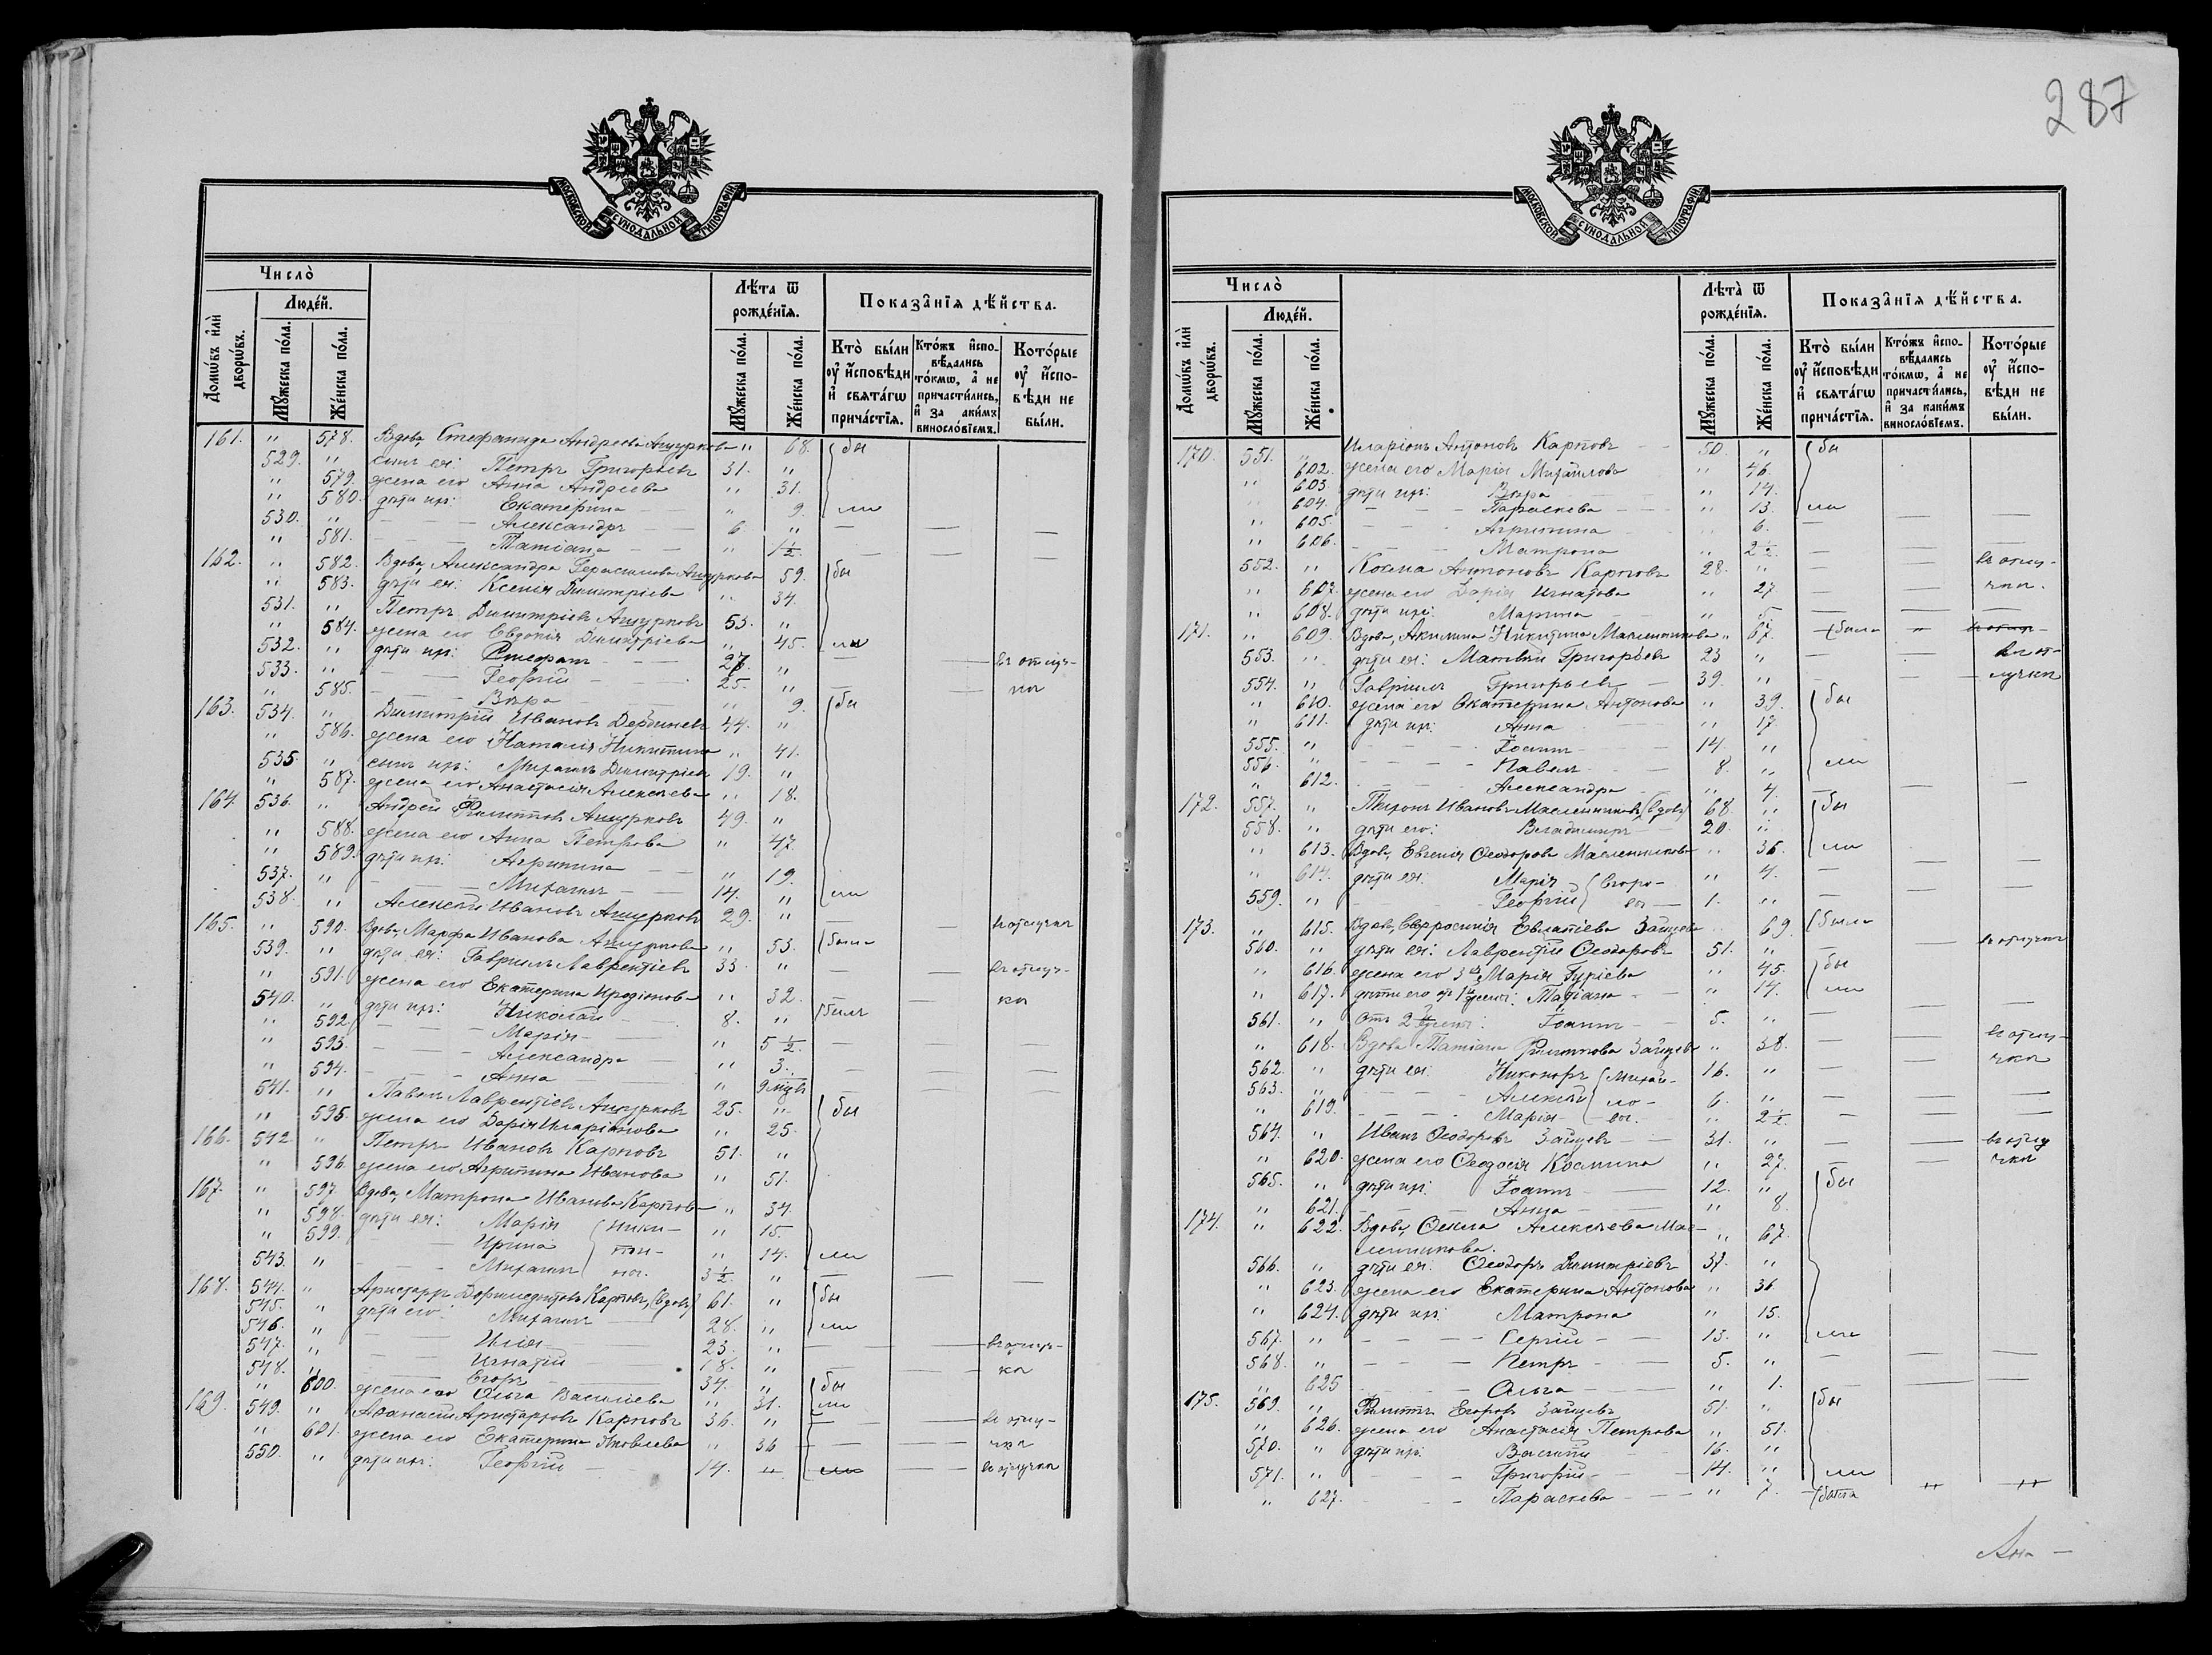 287
МОСКОВСКОЙ СУНОДАЛЬНОЙ ТИПОГРАФІИ
Число̀
Домѡ́въ и҆лѝ дворѡ́въ.
Люде́й.
Мꙋ́жеска по́ла.
Же́нска по́ла.
Лѣ́та ѿ рожде́нїѧ.
Мꙋ́жеска по́ла.
Же́нска по́ла.
Показа̑нїѧ дѣ́йства.
Кто̀ бы́ли оу҆ и҆́сповѣди и҆ свѧта́гѡ прича́стїѧ.
Кто́жъ и҆сповѣ́дались то́кмѡ, а҆ не причасти́лись, и҆ за акимъ винословїемъ.
Кото́рые оу҆ и҆́сповѣди не бы́ли.
161. " 578. Вдова, Стефанида Андреева Ашуркова " 68. бы
529. " сынъ ея: Петръ Григорьевъ 31. "
" 579. жена его Анна Андреева " 31.
" 580. дѣти ихъ: Екатерина " 9. ли
530. " Александръ 6. " —
" 581. Татіана " 1½ —
162. " 582. Вдова, Александра Герасимова Ашуркова 59. бы
" 583. дѣти ея: Ксенія Димитріева " 34.
531. " Петръ Димитріевъ Ашурковъ 53. "
" 584. жена его Евдокія Димитріева " 45. ли
532. " дѣти ихъ: Стефанъ 27. " — — въ отлуч-
533. " Георгій 25. " — — кѣ
" 585. Вѣра " 9. бы
163. 534. " Димитрій Ивановъ Дербеневъ 44. "
" 586. жена его Наталія Никитина " 41.
535. " сынъ ихъ: Михаилъ Димитріевъ 19. "
" 587. жена его Анастасія Алексѣева " 18.
164. 536. " Андрей Филипповъ Ашурковъ 49. "
" 588. жена его Анна Петрова " 47.
" 589. дѣти ихъ: Агрипина " 19.
537. " Михаилъ 14. " ли
538. " Алексѣй Ивановъ Ашурковъ 29. " — — въ отлучкѣ
165. " 590. Вдова, Марфа Иванова Ашуркова " 53. была
539. " дѣти ея: Гавріилъ Лаврентіевъ 33. " — — въ отлуч-
" 591. жена его Екатерина Иродіонова " 32. — — кѣ
540. " дѣти ихъ: Николай 8. " былъ
" 592. Марія " 5½ —
" 593. Александра " 3. —
" 594. Анна " 9 мцъ —
541. " Павелъ Лаврентіевъ Ашурковъ 25. " бы
" 595. жена его Дарія Иларіонова " 25.
166. 542. " Петръ Ивановъ Карповъ 51. "
" 596. жена его Агрипина Иванова " 51.
167. " 597. Вдова, Матрона Иванова Карпова " 34.
" 598. дѣти ея: Марія Ники- " 15.
" 599. Ирина " 14. ли
543. " Михаилъ 3½ " —
168. 544. " Аристархъ Доримедонтовъ Карповъ, (вдовъ) 61. " бы
545. " дѣти его: Михаилъ 28. " ли
546. " Илія 23. " — — въ отлуч-
547. " Игнатій 18. " — — кѣ
548. " Егоръ 34. " бы
" 600. жена его Ольга Василіева " 31. ли
169. 549. " Аѳанасій Аристарховъ Карповъ 36. " — — въ отлу-
" 601. жена его Екатерина Яковлева " 36 — — чкѣ
550. " дѣти ихъ: Георгій 14. " — въ отлучкѣ
МОСКОВСКОЙ СУНОДАЛЬНОЙ ТИПОГРАФІИ
Число̀
Домѡ́въ и҆лѝ дворѡ́въ.
Люде́й.
Мꙋ́жеска по́ла.
Же́нска по́ла.
Лѣ́та ѿ рожде́нїѧ.
Мꙋ́жеска по́ла.
Же́нска по́ла.
Показа̑нїѧ дѣ́йства.
Кто̀ бы́ли оу҆ и҆́сповѣди и҆ свѧта́гѡ прича́стїѧ.
Кто́жъ и҆сповѣ́дались то́кмѡ, а҆ не причасти́лись, и҆ за каки́мъ винословїемъ.
Кото́рые оу҆ и҆́сповѣди не бы́ли.
170. 551. " Иларіонъ Антоновъ Карповъ 50. " бы
602. жена его Марія Михайлова " 46.
" 603. дѣти ихъ: Вѣра " 14.
604. Параскева " 13. ли
" 605. Агрипина 6. —
" 606. Матрона " 2½ —
552. " Козма Антоновъ Карповъ 28. " — въ отлу-
" 607. жена его Дарія Игнатова " 27 — чкѣ.
" 608. дѣти ихъ: Марина " 5 —
171. " 609. Вдова, Акилина Никитина Масленникова " 67. была "
553. " дѣти ея: Матвѣй Григорьевъ 23 " — — въ от-
554. " Гавріилъ Григорьевъ 39. " — — лучкѣ
" 610. жена его Екатерина Антонова " 39. бы
" 611. дѣти ихъ: Анна " 17.
555. " Іоаннъ 14. "
556. " Павелъ 8. " ли
" 612. Александра " 4. —
172. 557. " Тихонъ Ивановъ Масленниковъ (вдовъ) 68. " бы
558. " дѣти его: Владимиръ 20. "
" 613. Вдова, Евгенія Ѳеодорова Масленникова " 36. ли
" 614. дѣти ея: Марія Егоро- " 4. —
559. " Георгій вы 1. " —
173. " 615. Вдова, Евфросинія Евлапіева Зайцева " 69. была
560. " дѣти ея: Лаврентій Ѳеодоровъ 51. " — — въ отлучкѣ
" 616. жена его 3я Марія Гуріева " 45. бы
" 617. дѣти его отъ 1й жены: Татіана " 14. ли
561. " Отъ 2й жены: Іоаннъ 5. " —
" 618. Вдова Татіана Филиппова Зайцева " 38. — въ отлу-
562. " дѣти ея: Никаноръ Михай- 16. " — чкѣ
563. " Алексѣй ло- 6. " —
" 619. Марія вы. " 2½ —
564. " Иванъ Ѳеодоровъ Зайцевъ 31. " — — въ отлу
" 620. жена его Ѳеодосія Космина " 27. — чкѣ
565. " дѣти ихъ: Іоаннъ 12. " бы
" 621. Анна " 8.
174. " 622. Вдова, Ѳекла Алексѣева Мас- " 67.
ленникова.
566. " дѣти ея: Ѳеодоръ Димитріевъ 37. "
" 623. жена его Екатерина Антонова " 36
" 624. дѣти ихъ: Матрона " 15.
567. " Сергій 13. " ли
568. " Петръ 5. " —
" 625 Ольга " 1. —
175. 569. " Филиппъ Егоровъ Зайцевъ 51. " бы
" 626. жена его Анастасія Петрова " 51.
570. " дѣти ихъ: Василій 16. "
571. " Григорій 14. " ли
" 627. Параскева " 7. была " "